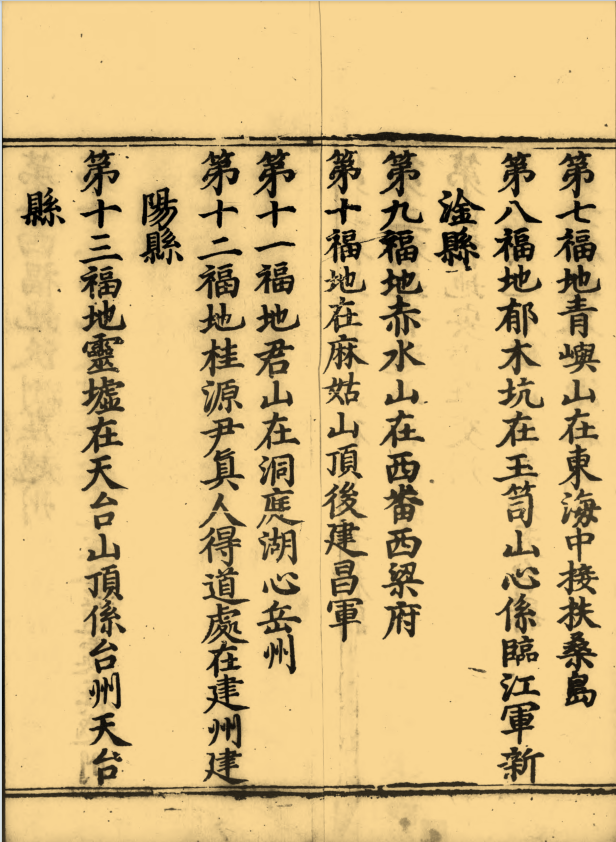 第七福地青嶼山在東海中接扶桑島
第八福地郁木坑在玉笥山心係臨江軍新
淦縣
第九福地赤水山在西畨西梁府
第十福地在麻姑山頂後建昌軍
第十一福地君山在洞庭湖心岳州
第十二福地桂源尹真人得道處在建州建
陽縣
第十三福地靈墟在天台山頂係台州天台
縣